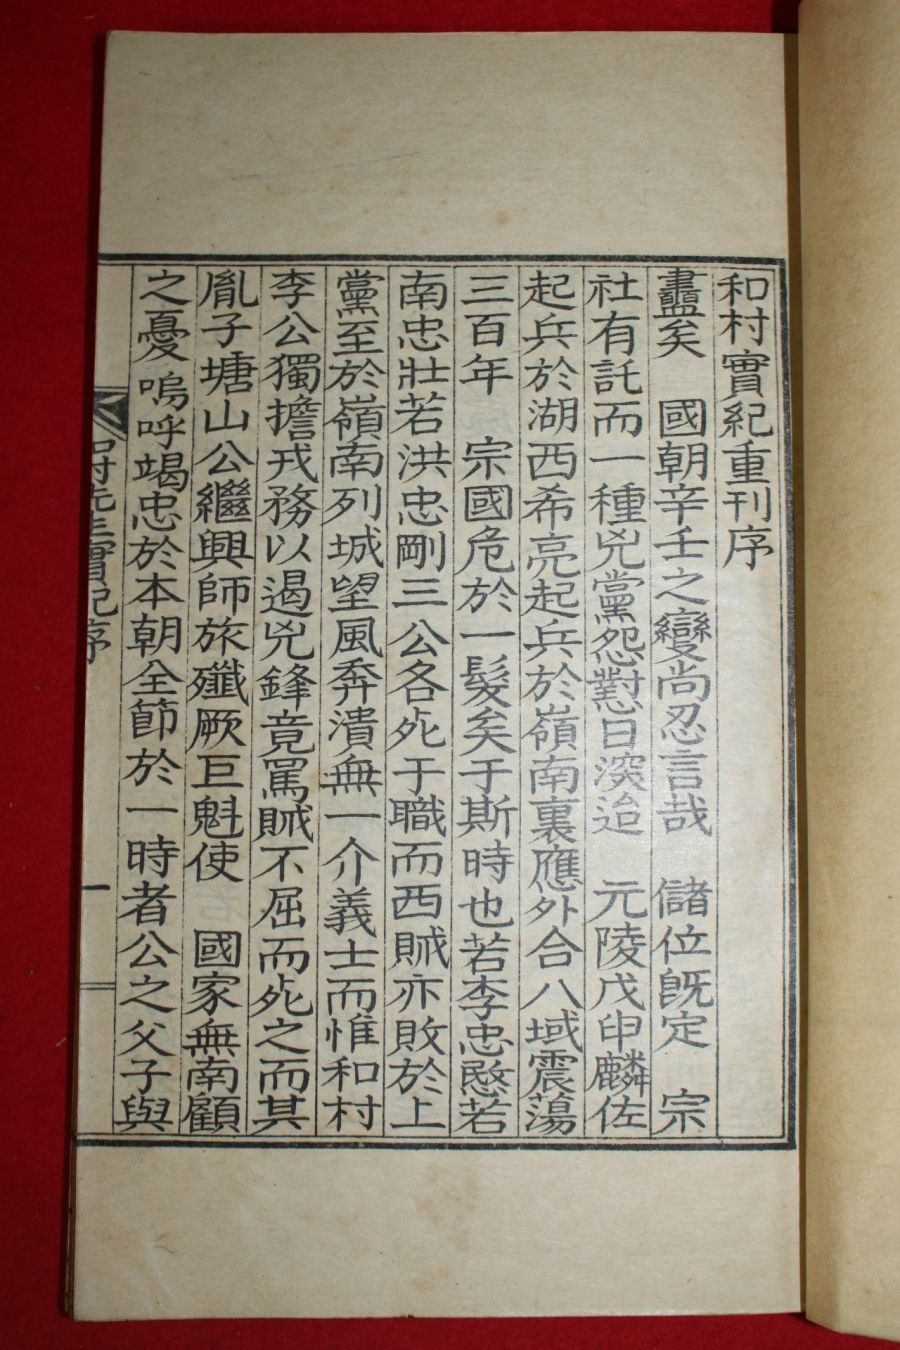 和村實紀重刊序
盡矣 國朝辛壬之變尚忍言哉 儲位旣定 宗
社有託而一種兇黨怨懟日深迨 元陵戊申麟佐
起兵於湖西希亮起兵於嶺南裏應外合八域震蕩
三百年 宗國危於一髮矣于斯時也若李忠愍若
南忠壯若洪忠剛三公各死于職而西賊亦敗於上
黨至於嶺南列城望風奔潰無一介義士而惟和村
李公獨擔戎務以遏兇鋒竟罵賊不屈而死之而其
胤子塘山公繼興師旅殲厥巨魁使 國家無南顧
之憂 嗚呼竭忠於本朝全節於一時者公之父子與
和村先生實紀序 一